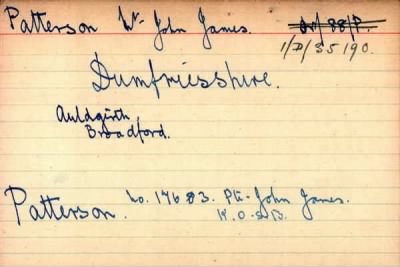 Patterson Lt. John James.
1/D/35190.
Dumfriesshire.
Auldgirth
Broadford.
Patterson. No. 17683. Pte. John James.
K.O.S.B.